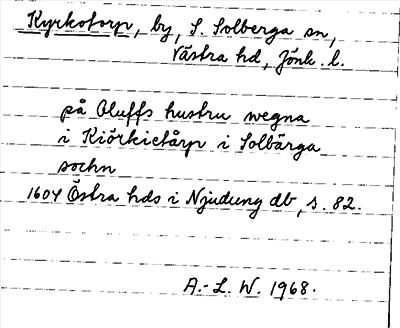 Kyrkotorp, by, S. Solberga sn,
Västra hd, Jönk. l.
på Oluffs hustru wegna
i Kiörkietårp i Solbärga
sochn
1604 Östra hds i Njudung db, s. 82.
A.-L. W. 1968.